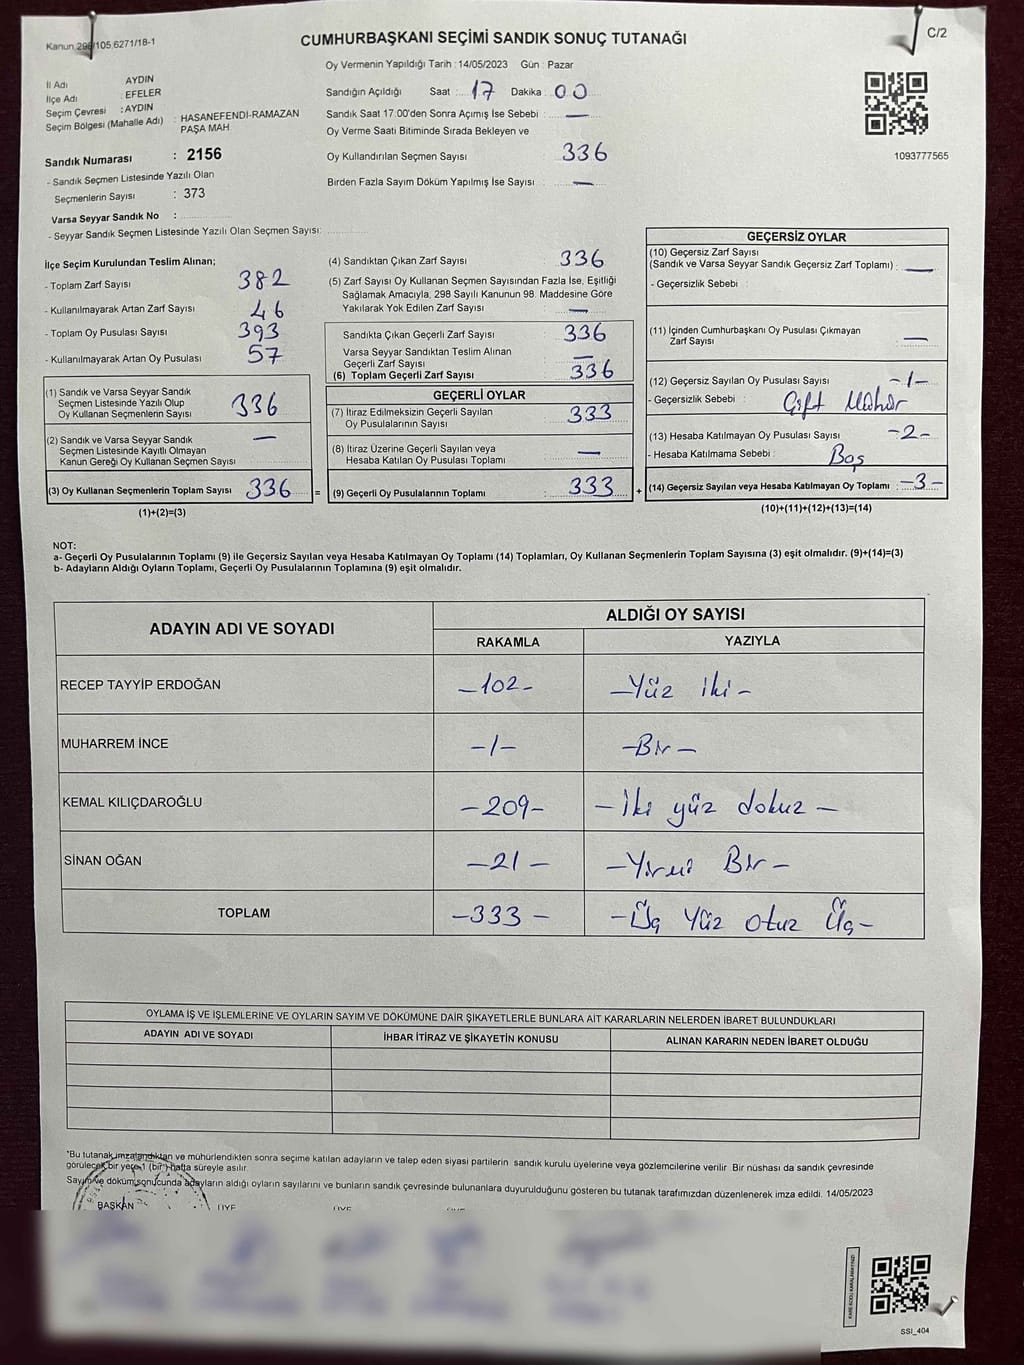 Kanun 298/105,6271/18-1
CUMHURBAŞKANI SEÇİMİ SANDIK SONUÇ TUTANAĞI
C/2
Oy Vermenin Yapıldığı Tarih : 14/05/2023 Gün : Pazar
İl Adı AYDIN
İlçe Adı : EFELER
Seçim Çevresi : AYDIN
Seçim Bölgesi (Mahalle Adı) : HASANEFENDİ-RAMAZAN
PAŞA MAH
Sandık Numarası : 2156
- Sandık Seçmen Listesinde Yazılı Olan
Seçmenlerin Sayısı : 373
Varsa Seyyar Sandık No :
- Seyyar Sandık Seçmen Listesinde Yazılı Olan Seçmen Sayısı:
Sandığın Açıldığı Saat : 17 Dakika : 00
Sandık Saat 17.00'den Sonra Açımış İse Sebebi : —
Oy Verme Saati Bitiminde Sırada Bekleyen ve
Oy Kullandırılan Seçmen Sayısı 336
Birden Fazla Sayım Döküm Yapılmış İse Sayısı : —
1093777565
İlçe Seçim Kurulundan Teslim Alınan;
- Toplam Zarf Sayısı 382
- Kullanılmayarak Artan Zarf Sayısı 46
- Toplam Oy Pusulası Sayısı 393
- Kullanılmayarak Artan Oy Pusulası 57
(1) Sandık ve Varsa Seyyar Sandık
Seçmen Listesinde Yazılı Olup
Oy Kullanan Seçmenlerin Sayısı 336
(2) Sandık ve Varsa Seyyar Sandık —
Seçmen Listesinde Kayıtlı Olmayan
Kanun Gereği Oy Kullanan Seçmen Sayısı
(3) Oy Kullanan Seçmenlerin Toplam Sayısı 336 =
(1)+(2)=(3)
(4) Sandıktan Çıkan Zarf Sayısı 336
(5) Zarf Sayısı Oy Kullanan Seçmen Sayısından Fazla İse, Eşitliği
Sağlamak Amacıyla, 298 Sayılı Kanunun 98. Maddesine Göre
Yakılarak Yok Edilen Zarf Sayısı —
Sandıkta Çıkan Geçerli Zarf Sayısı 336
Varsa Seyyar Sandıktan Teslim Alınan
Geçerli Zarf Sayısı —
(6) Toplam Geçerli Zarf Sayısı 336
GEÇERLİ OYLAR
(7) İtiraz Edilmeksizin Geçerli Sayılan
Oy Pusulasının Sayısı 333
(8) İtiraz Üzerine Geçerli Sayılan veya
Hesaba Katılan Oy Pusulası Toplamı —
(9) Geçerli Oy Pusulalarının Toplamı : 333 +
GEÇERSİZ OYLAR
(10) Geçersiz Zarf Sayısı
(Sandık ve Varsa Seyyar Sandık Geçersiz Zarf Toplamı) : —
- Geçersizlik Sebebi :
(11) İçinden Cumhurbaşkanı Oy Pusulası Çıkmayan
Zarf Sayısı —
(12) Geçersiz Sayılan Oy Pusulası Sayısı -1-
- Geçersizlik Sebebi : Çift Mühür
(13) Hesaba Katılmayan Oy Pusulası Sayısı -2-
- Hesaba Katılmama Sebebi : Boş
(14) Geçersiz Sayılan veya Hesaba Katılmayan Oy Toplamı : -3-
(10)+(11)+(12)+(13)=(14)
NOT:
a- Geçerli Oy Pusulalarının Toplamı (9) ile Geçersiz Sayılan veya Hesaba Katılmayan Oy Toplamı (14) Toplamları, Oy Kullanan Seçmenlerin Toplam Sayısına (3) eşit olmalıdır. (9)+(14)=(3)
b- Adayların Aldığı Oyların Toplamı, Geçerli Oy Pusulalarının Toplamına (9) eşit olmalıdır.
ADAYIN ADI VE SOYADI
ALDIĞI OY SAYISI
RAKAMLA YAZIYLA
RECEP TAYYİP ERDOĞAN -102- -Yüz iki-
MUHARREM İNCE -1- -Bir-
KEMAL KILIÇDAROĞLU -209- -İki yüz dokuz-
SİNAN OĞAN -21- -Yirmi Bir-
TOPLAM -333- -Üç Yüz otuz Üç-
OYLAMA İŞ VE İŞLEMLERİNE VE OYLARIN SAYIM VE DÖKÜMÜNE DAİR ŞİKAYETLERLE BUNLARA AİT KARARLARIN NELERDEN İBARET BULUNDUKLARI
ADAYIN ADI VE SOYADI İHBAR İTİRAZ VE ŞİKAYETİN KONUSU ALINAN KARARIN NEDEN İBARET OLDUĞU
*Bu tutanak imzalandıktan ve mühürlendikten sonra seçime katılan adayların ve talep eden siyasi partilerin sandık kurulu üyelerine veya gözlemcilerine verilir. Bir nüshası da sandık çevresinde
görülecek bir yere 1 (bir) hafta süreyle asılır.
Sayım ve döküm sonucunda adayların aldığı oyların sayılarını ve bunların sandık çevresinde bulunanlara duyurulduğunu gösteren bu tutanak tarafımızdan düzenlenerek imza edildi. 14/05/2023
BAŞKAN ÜYE ÜYE ÜYE
SSI_404